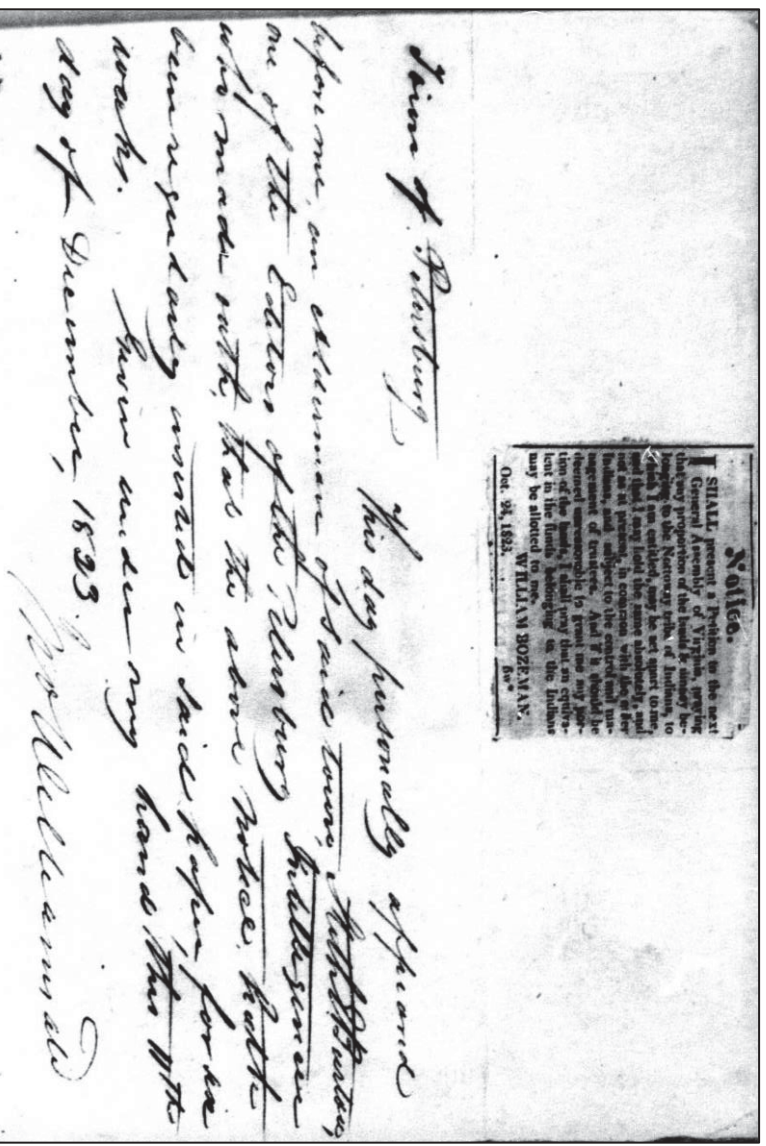 Notice.
I SHALL present a Petition to the next
General Assembly of Virginia, praying
that my proportion of the lands &c. now be-
longing to the Nottoway tribe of Indians, to
which I am entitled, may be set apart to me,
and that I may hold the same absolutely, and
not as at present, in common with the other
Indians, and subject to the control and man-
agement of trustees. And if it should be
deemed unreasonable to grant me my por-
tion of the lands, I shall pray that an equiva-
lent in the funds belonging to the Indians
may be allotted to me.
WILLIAM BOZEMAN.
Oct. 24, 1823. 6w*
Town of Petersburg
This day personally appeared
before me, an Alderman of said town,
one of the Editors of the Petersburg Intelligencer
who made oath, that the above Notice hath
been regularly inserted in said paper, for six
weeks. Given under my hand this 11th
day of December, 1823.